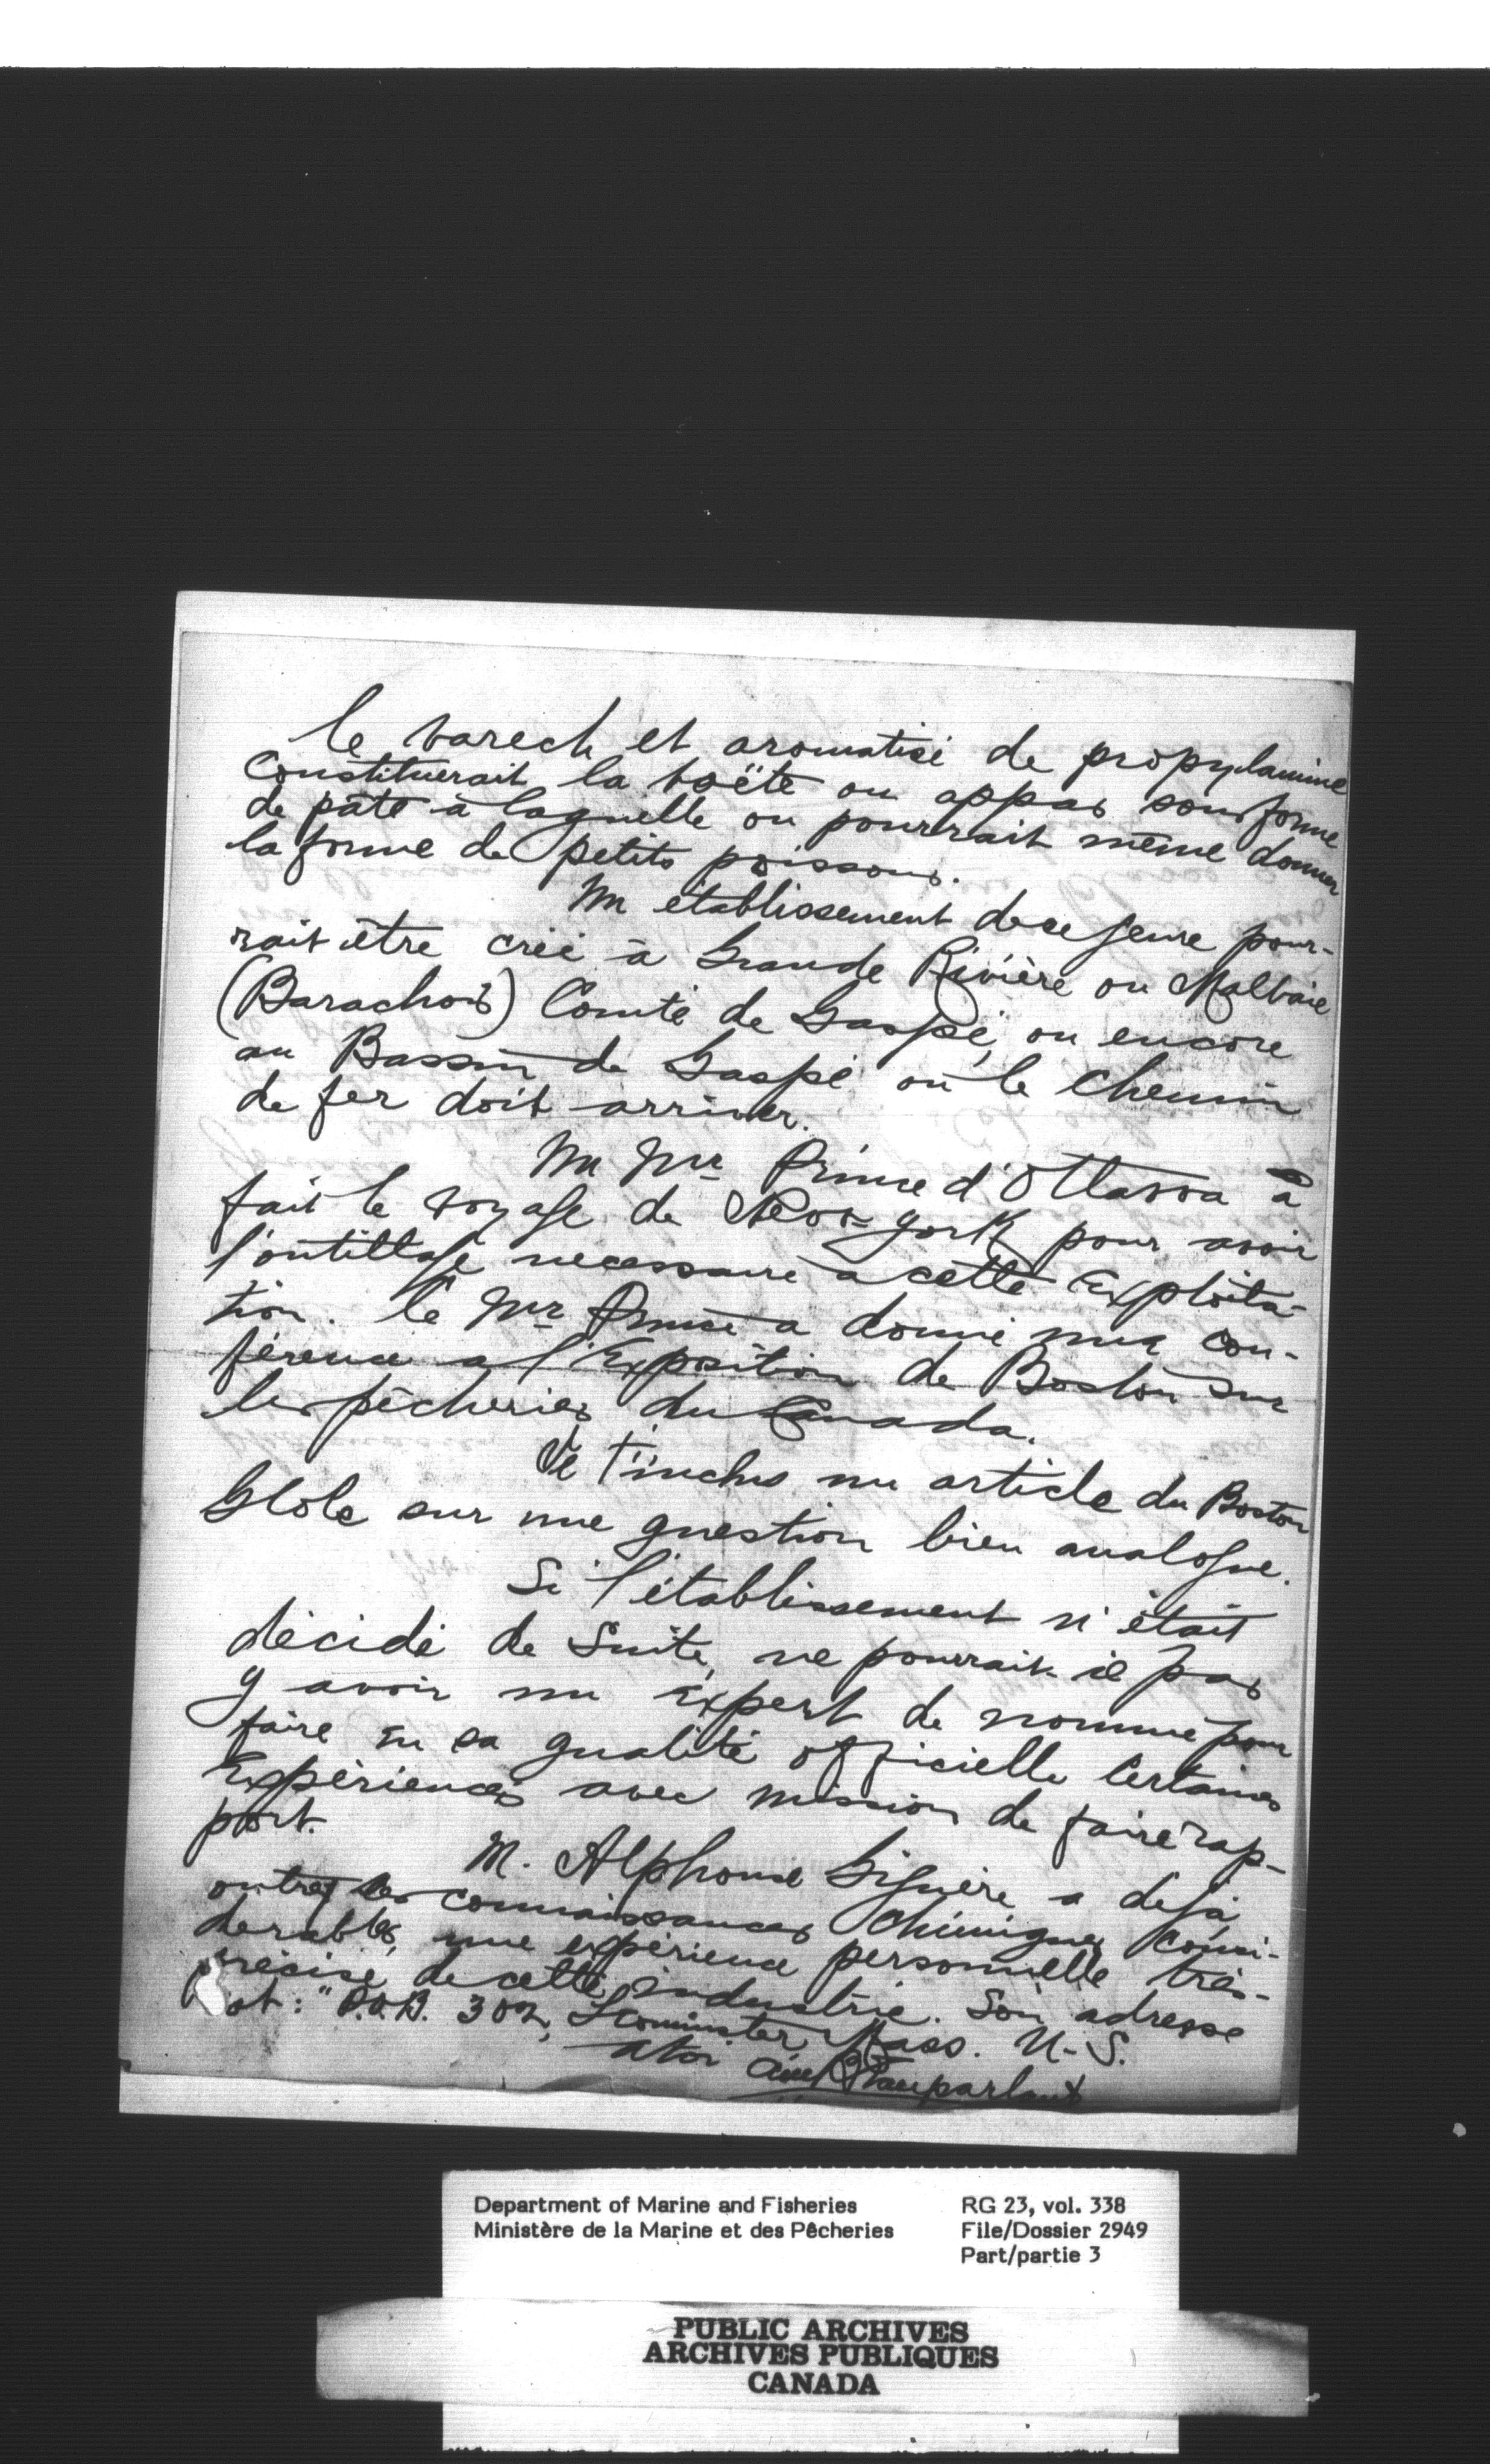 le varech et aromatisé de propylamine
Constituerait la boëte ou appas sous forme
de pâte à laquelle on pourrait même donner
la forme de petits poissons.
Un établissement de ce genre pour-
rait être créé à Grande Rivière ou Malbaie
(Barachois) Comté de Gaspé, ou encore
au Bassin de Gaspé où le chemin
de fer doit arriver.
Un Mr Prince d'Ottawa a
fait le voyage de New-york pour avoir
l'outillage necessaire a cette Exploita-
tion. Ce Mr Prince a donné une con-
férence a l'Exposition de Boston sur
les pêcheries du Canada.
Je t'inclus un article du Boston
Globe sur une question bien analogue.
Si l'établissement n'était
décidé de Suite, ne pourrait-il pas
y avoir un Expert de nommé pour
faire en sa qualité officielle Certaines
Expériences avec mission de faire rap-
port.
M. Alphonse Giguère a déjà,
outre ses connaissances chimiques consi-
derables, une expérience personnelle très-
précise de cette industrie. Son adresse
est: "P.O.B. 302, Leominster, Mass. U-S.
à toi
Department of Marine and Fisheries
Ministère de la Marine et des Pêcheries
RG 23, vol. 338
File/Dossier 2949
Part/partie 3
PUBLIC ARCHIVES
ARCHIVES PUBLIQUES
CANADA